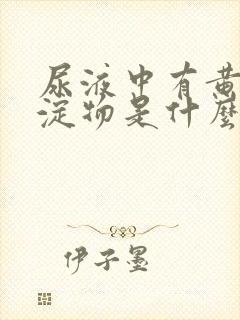 尿液中有黄
淀物是什麼
伊子墨